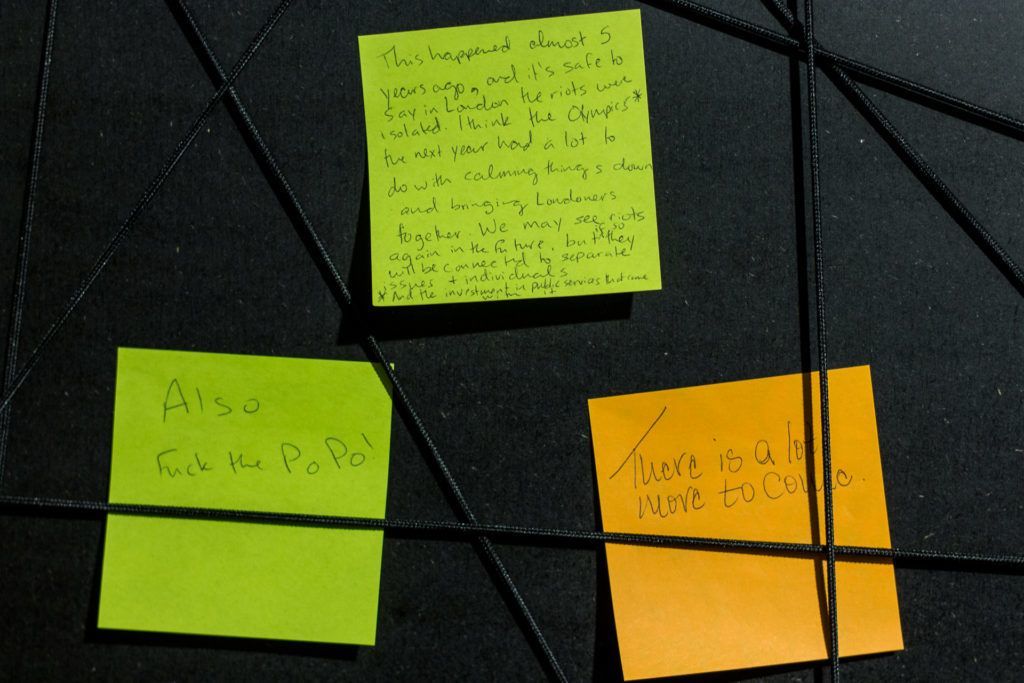 This happened almost 5
years ago, and it's safe to
say in London the riots were
isolated. I think the Olympics*
the next year had a lot to
do with calming things down
and bringing Londoners
together. We may see riots
again in the future, but if so they
will be connected to separate
issues + individuals
* And the investment in public services that came
with it
Also
Fuck the PoPo!
There is a lot
more to come.